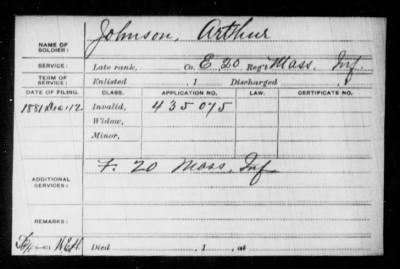 NAME OF SOLDIER: Johnson, Arthur
SERVICE: Late rank, Co. E, 20 Reg't Mass. Inf.
TERM OF SERVICE: Enlisted , 1 Discharged , 1
DATE OF FILING. CLASS. APPLICATION NO. LAW. CERTIFICATE NO.
1881 Dec 12 Invalid, 435075
Widow,
Minor,
ADDITIONAL SERVICES: F. 20 Mass. Inf.
REMARKS:
Died , 1 , at